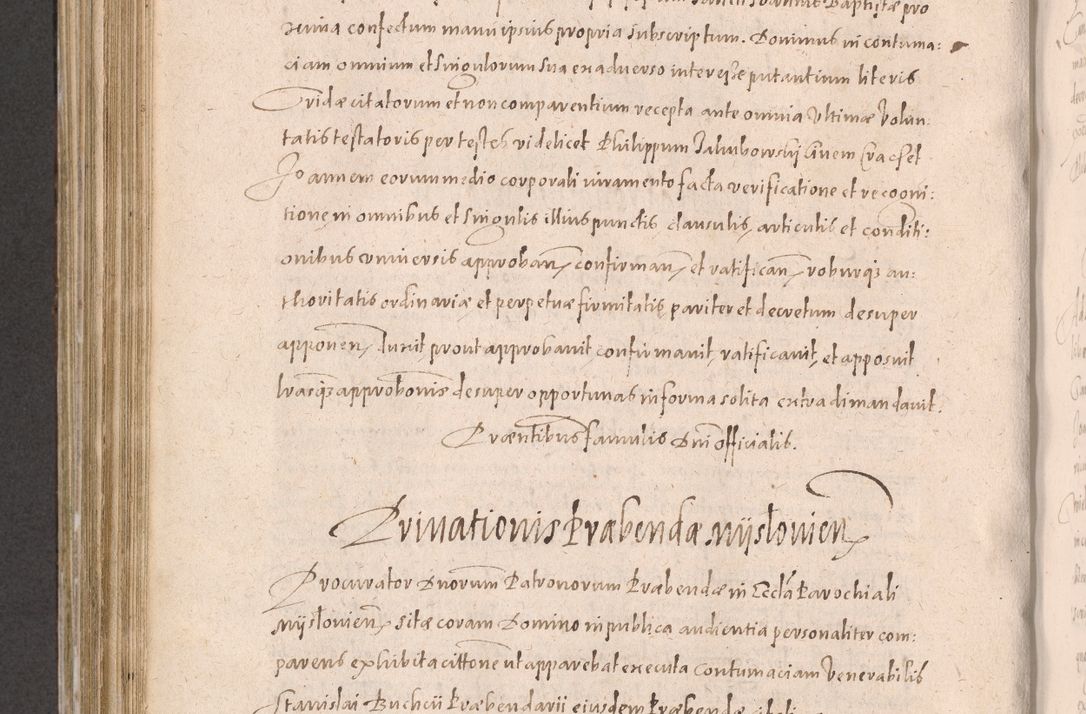 Baptistæ pro
xima confectum manu ipsius propria subscriptum. Dominus in contuma:
ciam omnium et singulorum sua ex adverso interesse putantium literis
Cridæ citatorum et non comparentium recepta ante omnia ultimæ volun:
tatis testatoris per testes videlicet Philippum Jakubowskij Civem Crac et
Joannem eorum medio corporali iuramento facta verificatione et recogni:
tione in omnibus et singulis illius punctis clausulis, articulis et conditi:
onibus universis approban̄ confirman̄ et ratifican̄ roburq̃ au:
thoritatis ordinariæ et perpetuæ firmitatis pariter et decretum desuper
apponen̄ duxit prout approbavit, confirmavit, ratificavit, et apposuit
lrasq̃ approbõnis desuper opportunas in forma solita extradi mandavit.
Præntibus famulis Dni officialis.
Privationis Præbendæ Mijslovien̄
Procurator Dnorum Patronorum Præbendæ in Eccl̃a Parochiali
Mijslovien̄ sitæ coram Domino in publica audientia personaliter com:
parens exhibita cittõne ut apparebat executa contumaciam Venerabilis
Stanislai Buchcii Præbendarii eiusdem Præbendæ